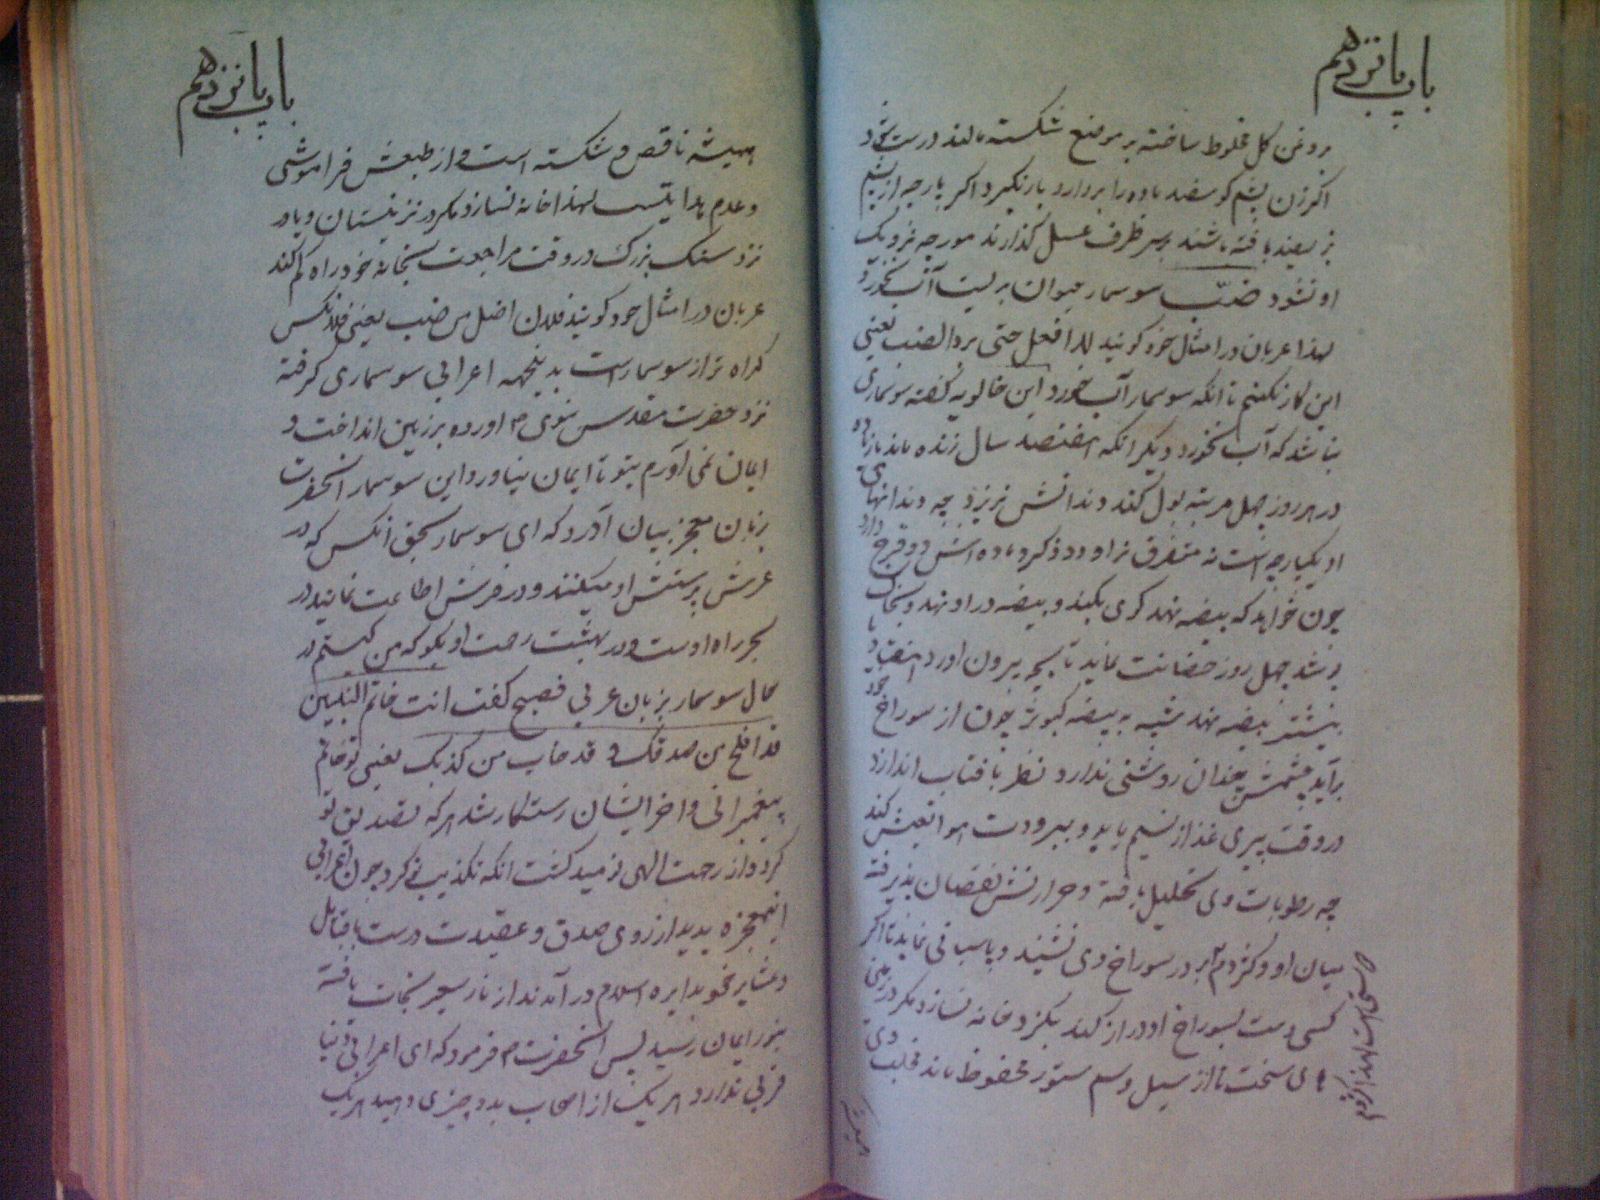 باب پانزدهم
روغن گل مخلوط ساخته بر موضع شکسته مالند درست شود
اگر زن پشم گوسفند ماده را بردارد بار نگیرد و اگر پارچه از پشم
بز سفید بافته باشند و بسر ظرف عسل گذارند مورچه نزدیک
او نشود ضبّ سوسمار حیوان بریست آب نخورد
لهذا عربان در امثال خود گویند لا افعل حتی یرد الضب یعنی
این کار نکنم تا انکه سوسمار آب خورد و ابن خالویه گفته سوسماری
نباشد که آب نخورد و دیگر انکه هفتصد سال زنده ماند زیاده
در هر روز چهل مرتبه بول کند و دندانش نریزد چه دندانهای
او یکپارچه است نه متفرق نر او دو ذکر و ماده اش دو فرج دارد
چون خواهد که بیضه نهد گوی بکند و بیضه در او نهد و بخاک
پوشد چهل روز حضانت نماید تا بچه بیرون اورد هفتاد
بیشتر بیضه نهد شبیه به بیضه کبوتر چون از سوراخ خود
برآید چشمش چندان روشنی ندارد نظر بافتاب اندازد
در وقت پیری غذا از نسیم یابد و ببرودت هوا تعیش کند
چه رطوبات وی تحلیل یافته و حرارتش نقصان پذیرفته
میان او و کژدم در سوراخ وی نشیند و پاسبانی نماید تا اگر
کسی دست بسوراخ او دراز کند بگزد خانه نسازد مگر در زمین
های سخت تا از سیل و سم ستور محفوظ ماند مخلب وی
همیشه
باب پانزدهم
همیشه ناقص و شکسته است و از طبعش فراموشی
و عدم هدایتست لهذا خانه نسازد مگر در نزد نیستان و یا در
نزد سنگ بزرگ در وقت مراجعت بخانه خود راه گم کند
عربان در امثال خود گویند فلان اضل من ضب یعنی فلانکس
گمراه تر از سوسمار است بدینجهه اعرابی سوسماری گرفته
نزد حضرت مقدس نبوی م اورده بر زمین انداخت و
ایمان نمی آورم بتو تا ایمان نیاورد این سوسمار انحضرت
بزبان معجز بیان آورد که ای سوسمار بحق انکس که در
عرش پرستش او میکنند و در فرش اطاعت نمایند در
بحر راه اوست و در بهشت رحمت او بگو که من کیستم در
حال سوسمار بزبان عربی فصیح گفت انت خاتم النبیین
قد افلح من صدقک و قد خاب من کذبک یعنی تو خاتم
پیغمبرانی و اخر ایشان رستگار شد هر که تصدیق تو
کرد و از رحمت الهی نومید گشت انکه تکذیب تو کرد چون اعرابی
اینمعجزه بدید از روی صدق و عقیدت درست با قبایل
و عشایر خود بدایره اسلام در آمدند از نار سعیر نجات یافته
بنور ایمان رسید پس انحضرت م فرمود که ای اعرابی دنیا
قربی ندارد هر یک از اصحاب بدو چیزی دهید هر یک